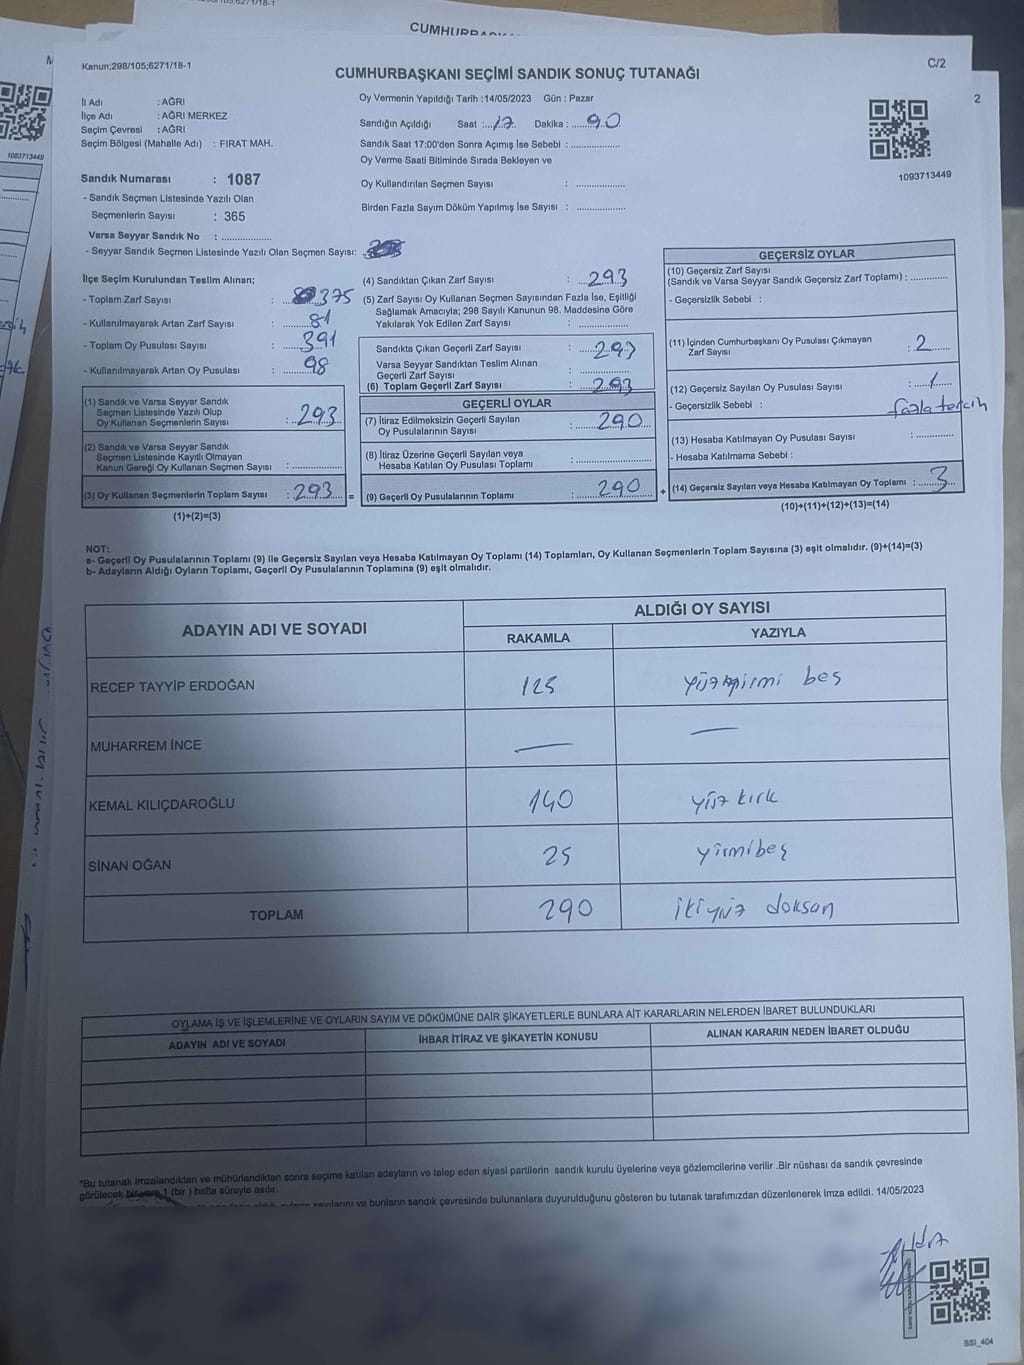 CUMHURBAŞKANI
Kanun;298/105;6271/18-1
C/2
CUMHURBAŞKANI SEÇİMİ SANDIK SONUÇ TUTANAĞI
2
İl Adı : AĞRI
İlçe Adı : AĞRI MERKEZ
Seçim Çevresi : AĞRI
Seçim Bölgesi (Mahalle Adı) : FIRAT MAH.
Oy Vermenin Yapıldığı Tarih :14/05/2023 Gün : Pazar
Sandığın Açıldığı Saat :...17.. Dakika :.......90
Sandık Saat 17:00'den Sonra Açımış İse Sebebi : ................
Oy Verme Saati Bitiminde Sırada Bekleyen ve
Oy Kullandırılan Seçmen Sayısı : ................
Birden Fazla Sayım Döküm Yapılmış İse Sayısı : ................
1083713449
1093713449
Sandık Numarası : 1087
- Sandık Seçmen Listesinde Yazılı Olan
Seçmenlerin Sayısı : 365
Varsa Seyyar Sandık No : ................
- Seyyar Sandık Seçmen Listesinde Yazılı Olan Seçmen Sayısı:
İlçe Seçim Kurulundan Teslim Alınan;
- Toplam Zarf Sayısı : 375
- Kullanılmayarak Artan Zarf Sayısı : 81
- Toplam Oy Pusulası Sayısı : 391
- Kullanılmayarak Artan Oy Pusulası : 98
(1) Sandık ve Varsa Seyyar Sandık
Seçmen Listesinde Yazılı Olup
Oy Kullanan Seçmenlerin Sayısı : 293
(2) Sandık ve Varsa Seyyar Sandık
Seçmen Listesinde Kayıtlı Olmayan
Kanun Gereği Oy Kullanan Seçmen Sayısı :................
(3) Oy Kullanan Seçmenlerin Toplam Sayısı : 293 =
(1)+(2)=(3)
(4) Sandıktan Çıkan Zarf Sayısı : 293
(5) Zarf Sayısı Oy Kullanan Seçmen Sayısından Fazla İse, Eşitliği
Sağlamak Amacıyla; 298 Sayılı Kanunun 98. Maddesine Göre
Yakılarak Yok Edilen Zarf Sayısı : ................
Sandıkta Çıkan Geçerli Zarf Sayısı : 293
Varsa Seyyar Sandıktan Teslim Alınan
Geçerli Zarf Sayısı : ................
(6) Toplam Geçerli Zarf Sayısı : 293
GEÇERLİ OYLAR
(7) İtiraz Edilmeksizin Geçerli Sayılan
Oy Pusulalarının Sayısı : 290
(8) İtiraz Üzerine Geçerli Sayılan veya
Hesaba Katılan Oy Pusulası Toplamı :................
(9) Geçerli Oy Pusulalarının Toplamı : 290 +
GEÇERSİZ OYLAR
(10) Geçersiz Zarf Sayısı
(Sandık ve Varsa Seyyar Sandık Geçersiz Zarf Toplamı) : ............
- Geçersizlik Sebebi :
(11) İçinden Cumhurbaşkanı Oy Pusulası Çıkmayan
Zarf Sayısı : 2
(12) Geçersiz Sayılan Oy Pusulası Sayısı : 1
- Geçersizlik Sebebi : fazla tercih
(13) Hesaba Katılmayan Oy Pusulası Sayısı : ............
- Hesaba Katılmama Sebebi :
(14) Geçersiz Sayılan veya Hesaba Katılmayan Oy Toplamı : 3
(10)+(11)+(12)+(13)=(14)
NOT:
a- Geçerli Oy Pusulalarının Toplamı (9) ile Geçersiz Sayılan veya Hesaba Katılmayan Oy Toplamı (14) Toplamları, Oy Kullanan Seçmenlerin Toplam Sayısına (3) eşit olmalıdır. (9)+(14)=(3)
b- Adayların Aldığı Oyların Toplamı, Geçerli Oy Pusulalarının Toplamına (9) eşit olmalıdır.
ADAYIN ADI VE SOYADI
ALDIĞI OY SAYISI
RAKAMLA YAZIYLA
RECEP TAYYİP ERDOĞAN 125 yüzyirmi beş
MUHARREM İNCE — —
KEMAL KILIÇDAROĞLU 140 yüz kırk
SİNAN OĞAN 25 yirmibeş
TOPLAM 290 ikiyüz doksan
OYLAMA İŞ VE İŞLEMLERİNE VE OYLARIN SAYIM VE DÖKÜMÜNE DAİR ŞİKAYETLERLE BUNLARA AİT KARARLARIN NELERDEN İBARET BULUNDUKLARI
ADAYIN ADI VE SOYADI İHBAR İTİRAZ VE ŞİKAYETİN KONUSU ALINAN KARARIN NEDEN İBARET OLDUĞU
*Bu tutanak imzalandıktan ve mühürlendikten sonra seçime katılan adayların ve talep eden siyasi partilerin sandık kurulu üyelerine veya gözlemcilerine verilir .Bir nüshası da sandık çevresinde
görülecek bir yere 1 (bir ) hafta süreyle asılır.
sayılarını ve bunların sandık çevresinde bulunanlara duyurulduğunu gösteren bu tutanak tarafımızdan düzenlenerek imza edildi. 14/05/2023
SSI_404